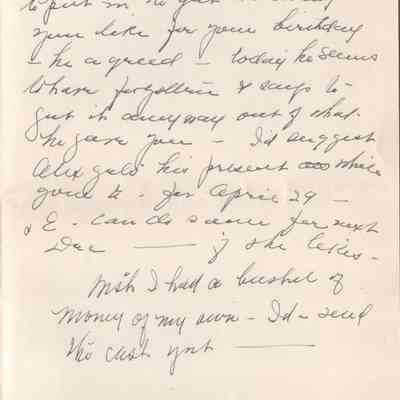 you like for your birthday
- he agreed - today he seems
to have forgotten & says to -
get it anyway out of what
he gave you - I'd suggest
Alex gets his present while
good - for April 29 -
& E - can do same for next
Dec — if she likes -
Wish I had a bushel of
money of my own - I'd - send